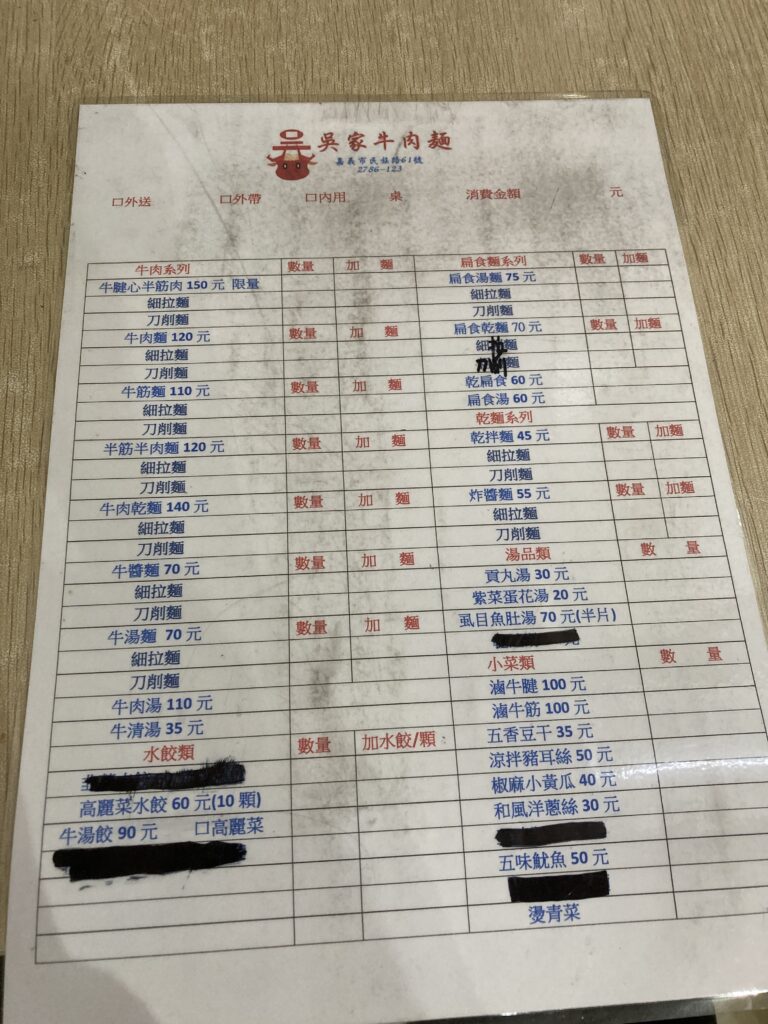 吳家牛肉麵
嘉義市民族路61號
2786-123
口外送 口外帶 口內用 桌 消費金額 元
牛肉系列 數量 加 麵
牛腱心半筋肉 150 元 限量
細拉麵
刀削麵
牛肉麵 120 元 數量 加 麵
細拉麵
刀削麵
牛筋麵 110 元 數量 加 麵
細拉麵
刀削麵
半筋半肉麵 120 元 數量 加 麵
細拉麵
刀削麵
牛肉乾麵 140 元 數量 加 麵
細拉麵
刀削麵
牛醬麵 70 元 數量 加 麵
細拉麵
刀削麵
牛湯麵 70 元 數量 加 麵
細拉麵
刀削麵
牛肉湯 110 元
牛清湯 35 元
水餃類 數量 加水餃/顆
高麗菜水餃 60 元(10 顆)
牛湯餃 90 元 口高麗菜
扁食麵系列 數量 加麵
扁食湯麵 75 元
細拉麵
刀削麵
扁食乾麵 70 元 數量 加麵
細 麵
麵
乾扁食 60 元
扁食湯 60 元
乾麵系列
乾拌麵 45 元 數量 加麵
細拉麵
刀削麵
炸醬麵 55 元 數量 加麵
細拉麵
刀削麵
湯品類 數 量
貢丸湯 30 元
紫菜蛋花湯 20 元
虱目魚肚湯 70 元(半片)
小菜類 數 量
滷牛腱 100 元
滷牛筋 100 元
五香豆干 35 元
涼拌豬耳絲 50 元
椒麻小黃瓜 40 元
和風洋蔥絲 30 元
五味魷魚 50 元
燙青菜